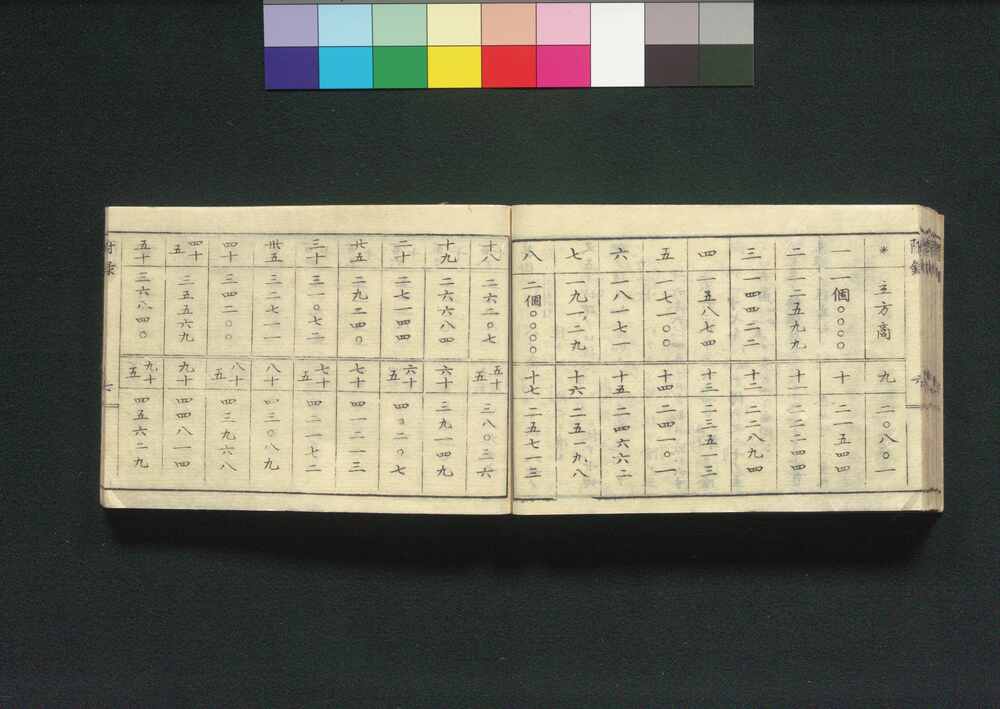 附錄
六
* 立方商
一 一個〇〇〇〇
二 一二五九九
三 一四四二二
四 一五八七四
五 一七一〇〇
六 一八一七一
七 一九一二九
八 二個〇〇〇〇
九 二〇八〇一
十 二一五四四
十一 二二二四四
十二 二二八九四
十三 二三五一三
十四 二四一〇一
十五 二四六六二
十六 二五一九八
十七 二五七一三
十八 二六二〇七
十九 二六六八四
二十 二七一四四
廿五 二九二四〇
三十 三一〇七二
卅五 三二七一一
四十 三四二〇〇
四十五 三五五六九
五十 三六八四〇
五十五 三八〇三六
六十 三九一四九
六十五 四〇二〇七
七十 四一二一三
七十五 四二一七二
八十 四三〇八九
八十五 四三九六八
九十 四四八一四
九十五 四五六二九
附錄
六